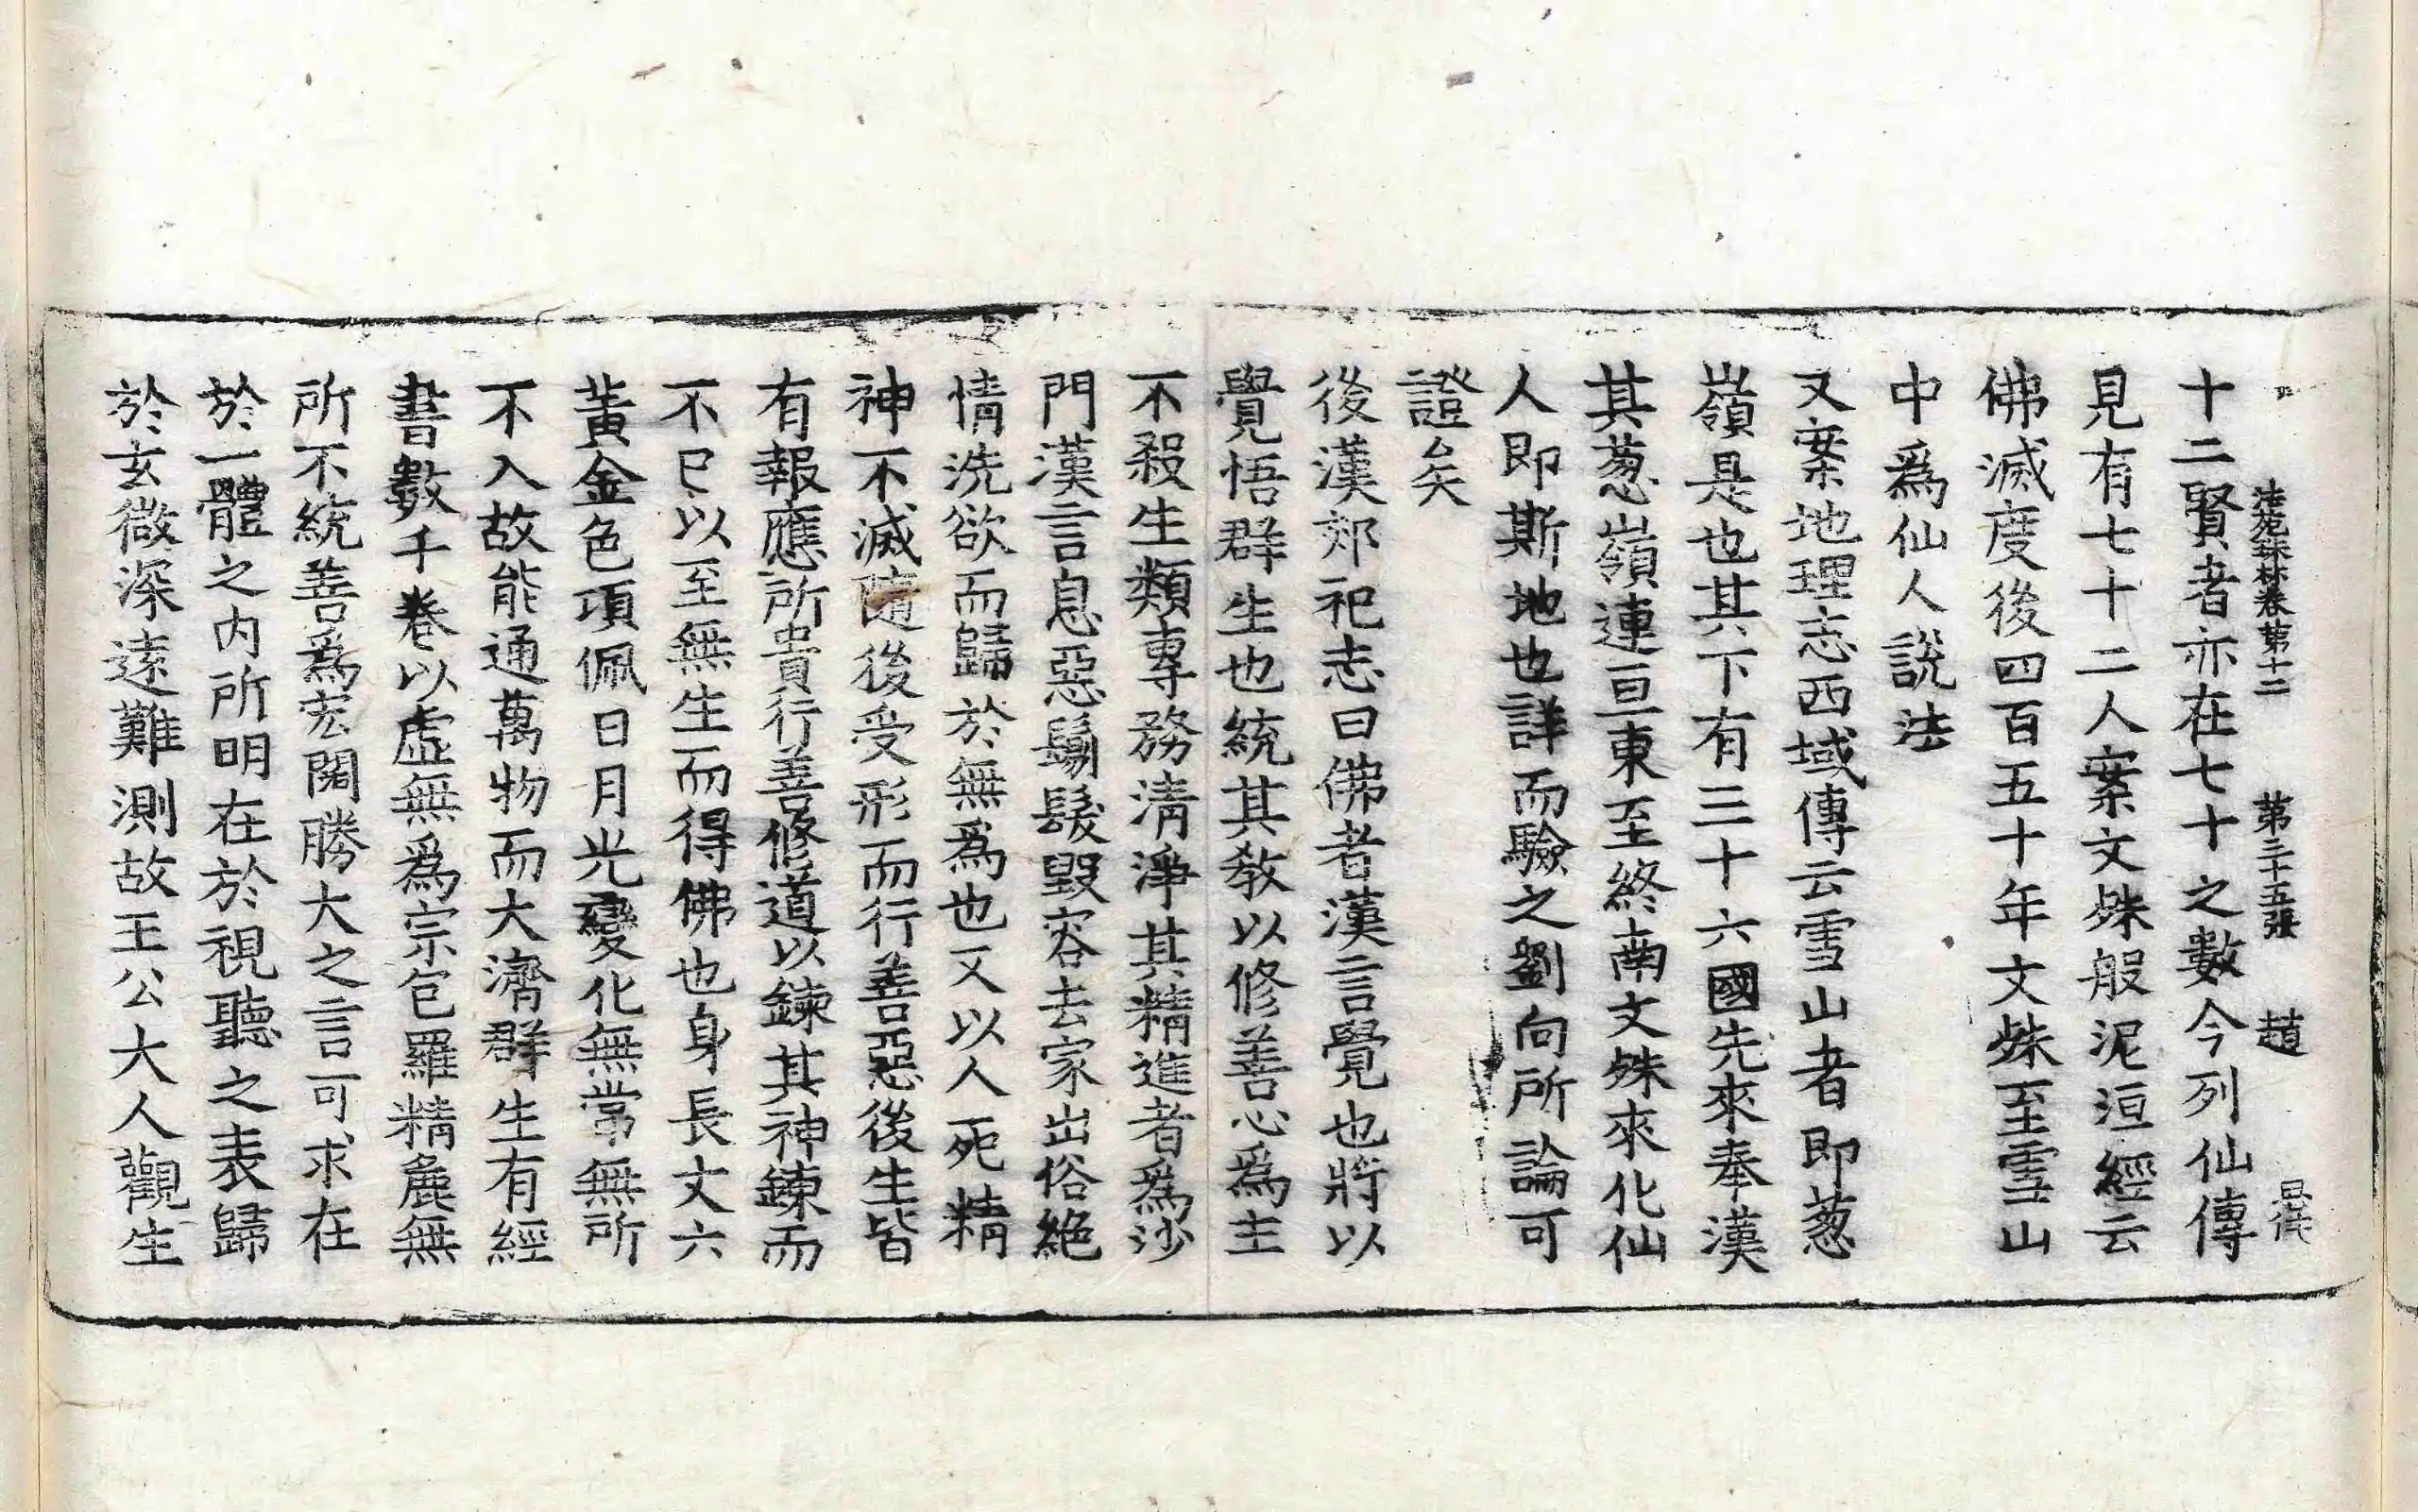 法苑珠林卷第十二 第三十五張 趙
十二賢者亦在七十之數今列仙傳
見有七十二人案文殊般泥洹經云
佛滅度後四百五十年文殊至雪山
中爲仙人說法
又案地理志西域傳云雪山者即葱
嶺是也其下有三十六國先來奉漢
其葱嶺連亘東至終南文殊來化仙
人即斯地也詳而驗之劉向所論可
證矣
後漢郊祀志曰佛者漢言覺也將以
覺悟群生也統其教以修善心爲主
不殺生類專務清淨其精進者爲沙
門漢言息惡鬀髮毀容去家出俗絶
情洗欲而歸於無爲也又以人死精
神不滅隨後受形而行善惡後生皆
有報應所貴行善修道以鍊其神鍊而
不已以至無生而得佛也身長丈六
黃金色項佩日月光變化無常無所
不入故能通萬物而大濟群生有經
書數千卷以虛無爲宗包羅精麁無
所不統善爲宏闊勝大之言可求在
於一體之內所明在於視聽之表歸
於玄微深遠難測故王公大人觀生